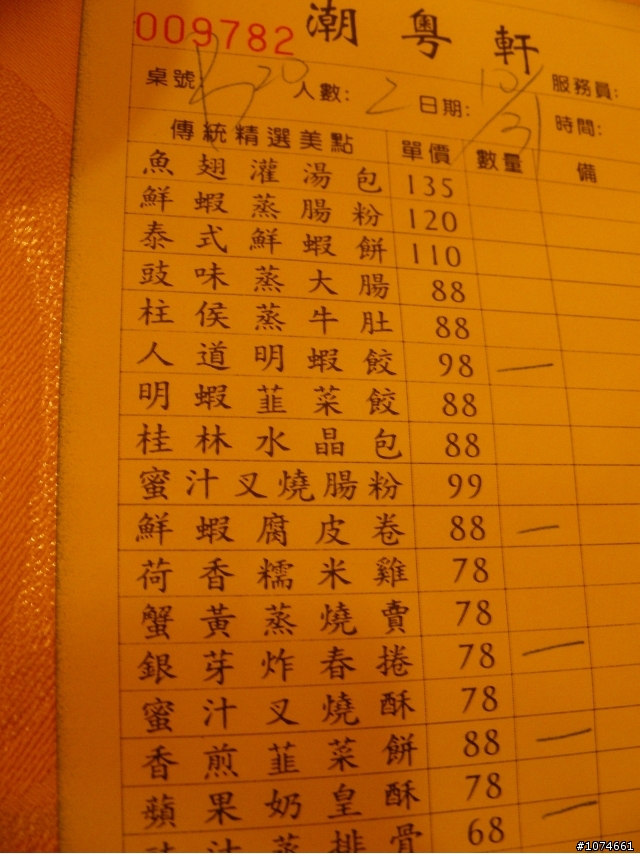 009782 潮粵軒
桌號: 人數: 2 日期: 10/31 服務員:
時間:
傳統精選美點 單價 數量 備
魚翅灌湯包 135
鮮蝦蒸腸粉 120
泰式鮮蝦餅 110
豉味蒸大腸 88
柱侯蒸牛肚 88
人道明蝦餃 98 一
明蝦韮菜餃 88
桂林水晶包 88
蜜汁叉燒腸粉 99
鮮蝦腐皮卷 88 一
荷香糯米雞 78
蟹黃蒸燒賣 78
銀芽炸春捲 78 一
蜜汁叉燒酥 78
香煎韮菜餅 88 一
蘋果奶皇酥 78
汁蒸排骨 68 一
#1074661